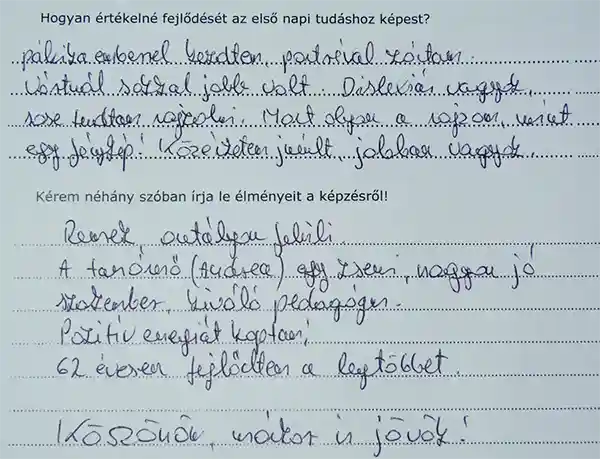 Hogyan értékelné fejlődését az első napi tudáshoz képest?
pálcika emberrel kezdtem, portréval zártam.
Vártnál sokkal jobb volt. Dislexiás vagyok,
sose tudtam rajzolni. Most olyan a rajzom, mint
egy fénykép! Közérzetem javult, jobban vagyok.
Kérem néhány szóban írja le élményeit a képzésről!
Remek, osztályon felüli.
A tanárnő (Andrea) egy zseni, nagyon jó
szakember, kiváló pedagógus.
Pozitív energiát kaptam,
62 évesen fejlődtem a legtöbbet.
Köszönöm, máskor is jövök!